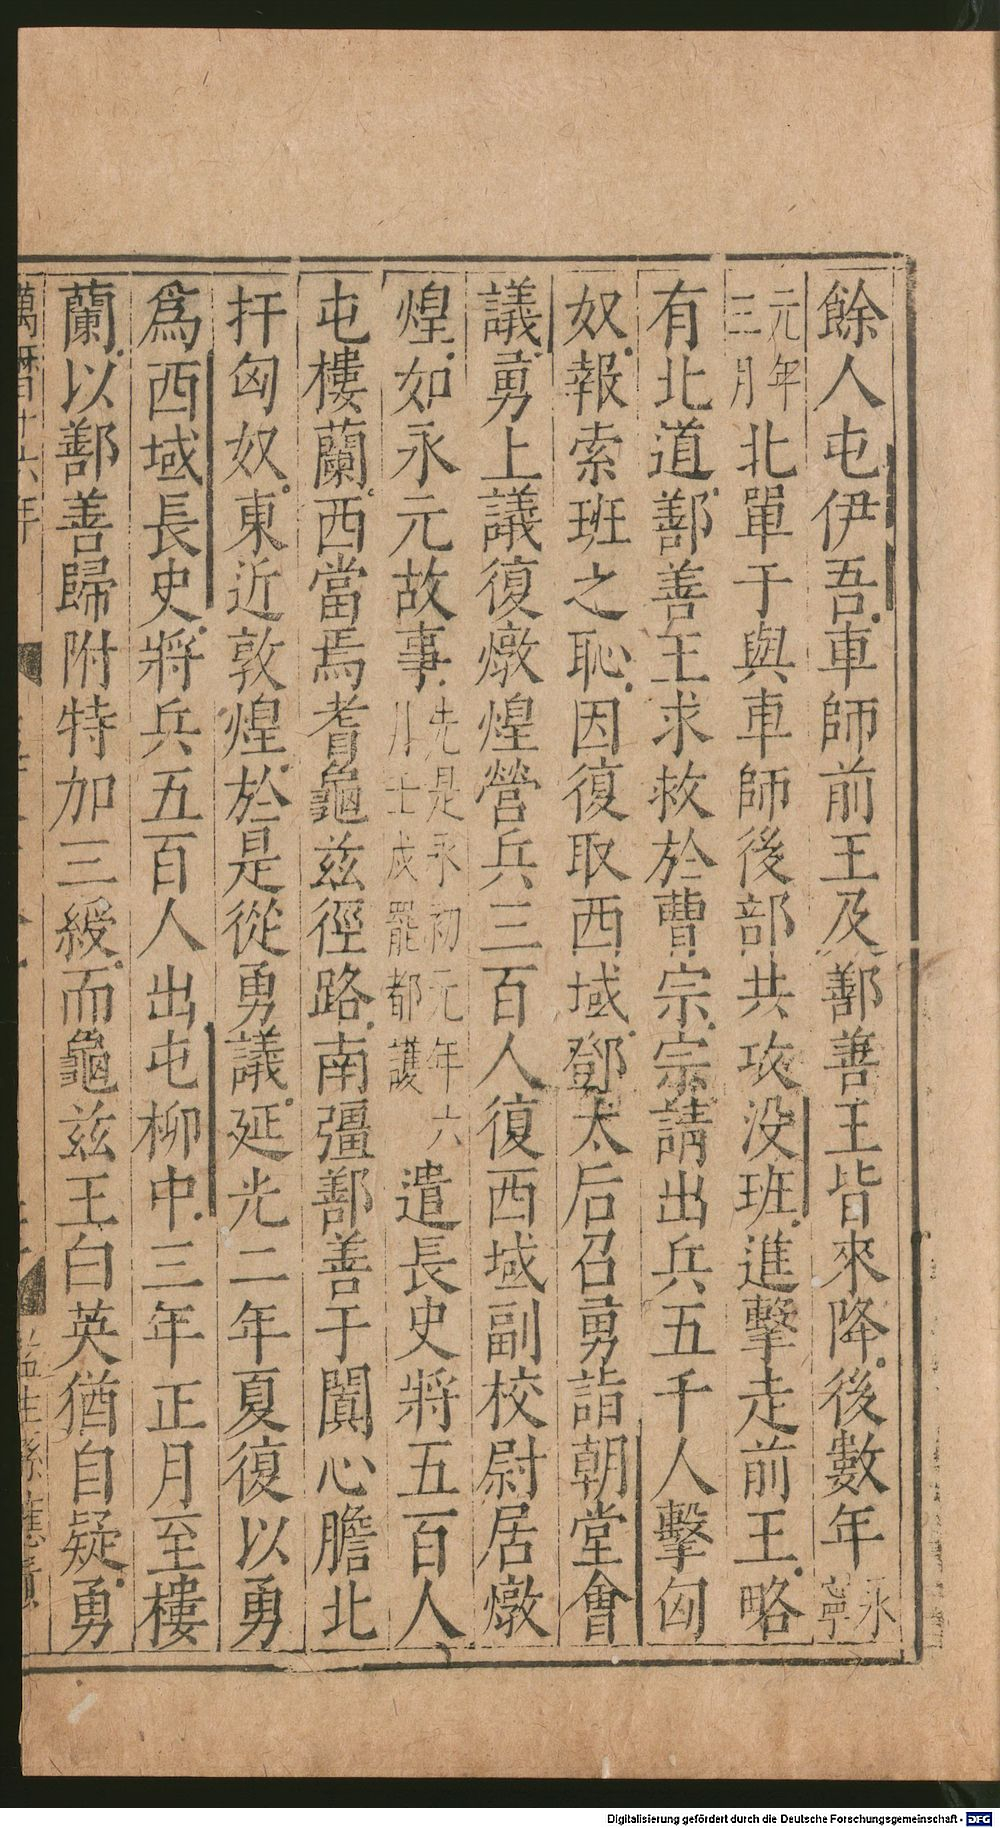 餘人屯伊吾車師前王及鄯善王皆來降後數年永寧
元年三月北單于與車師後部共攻没班進擊走前王略
有北道鄯善王求救於曹宗宗請出兵五千人擊匈
奴報索班之恥因復取西域鄧太后召勇詣朝堂會
議勇上議復燉煌營兵三百人復西域副校尉居燉
煌如永元故事先是永初元年六月士戍罷都護遣長史將五百人
屯樓蘭西當焉耆龜兹徑路南彊鄯善于闐心膽北
扞匈奴東近敦煌於是從勇議延光二年夏復以勇
爲西域長史將兵五百人出屯柳中三年正月至樓
蘭以鄯善歸附特加三綬而龜兹王白英猶自疑勇
萬曆十六年
監生
Digitalisierung gefördert durch die Deutsche Forschungsgemeinschaft - DFG